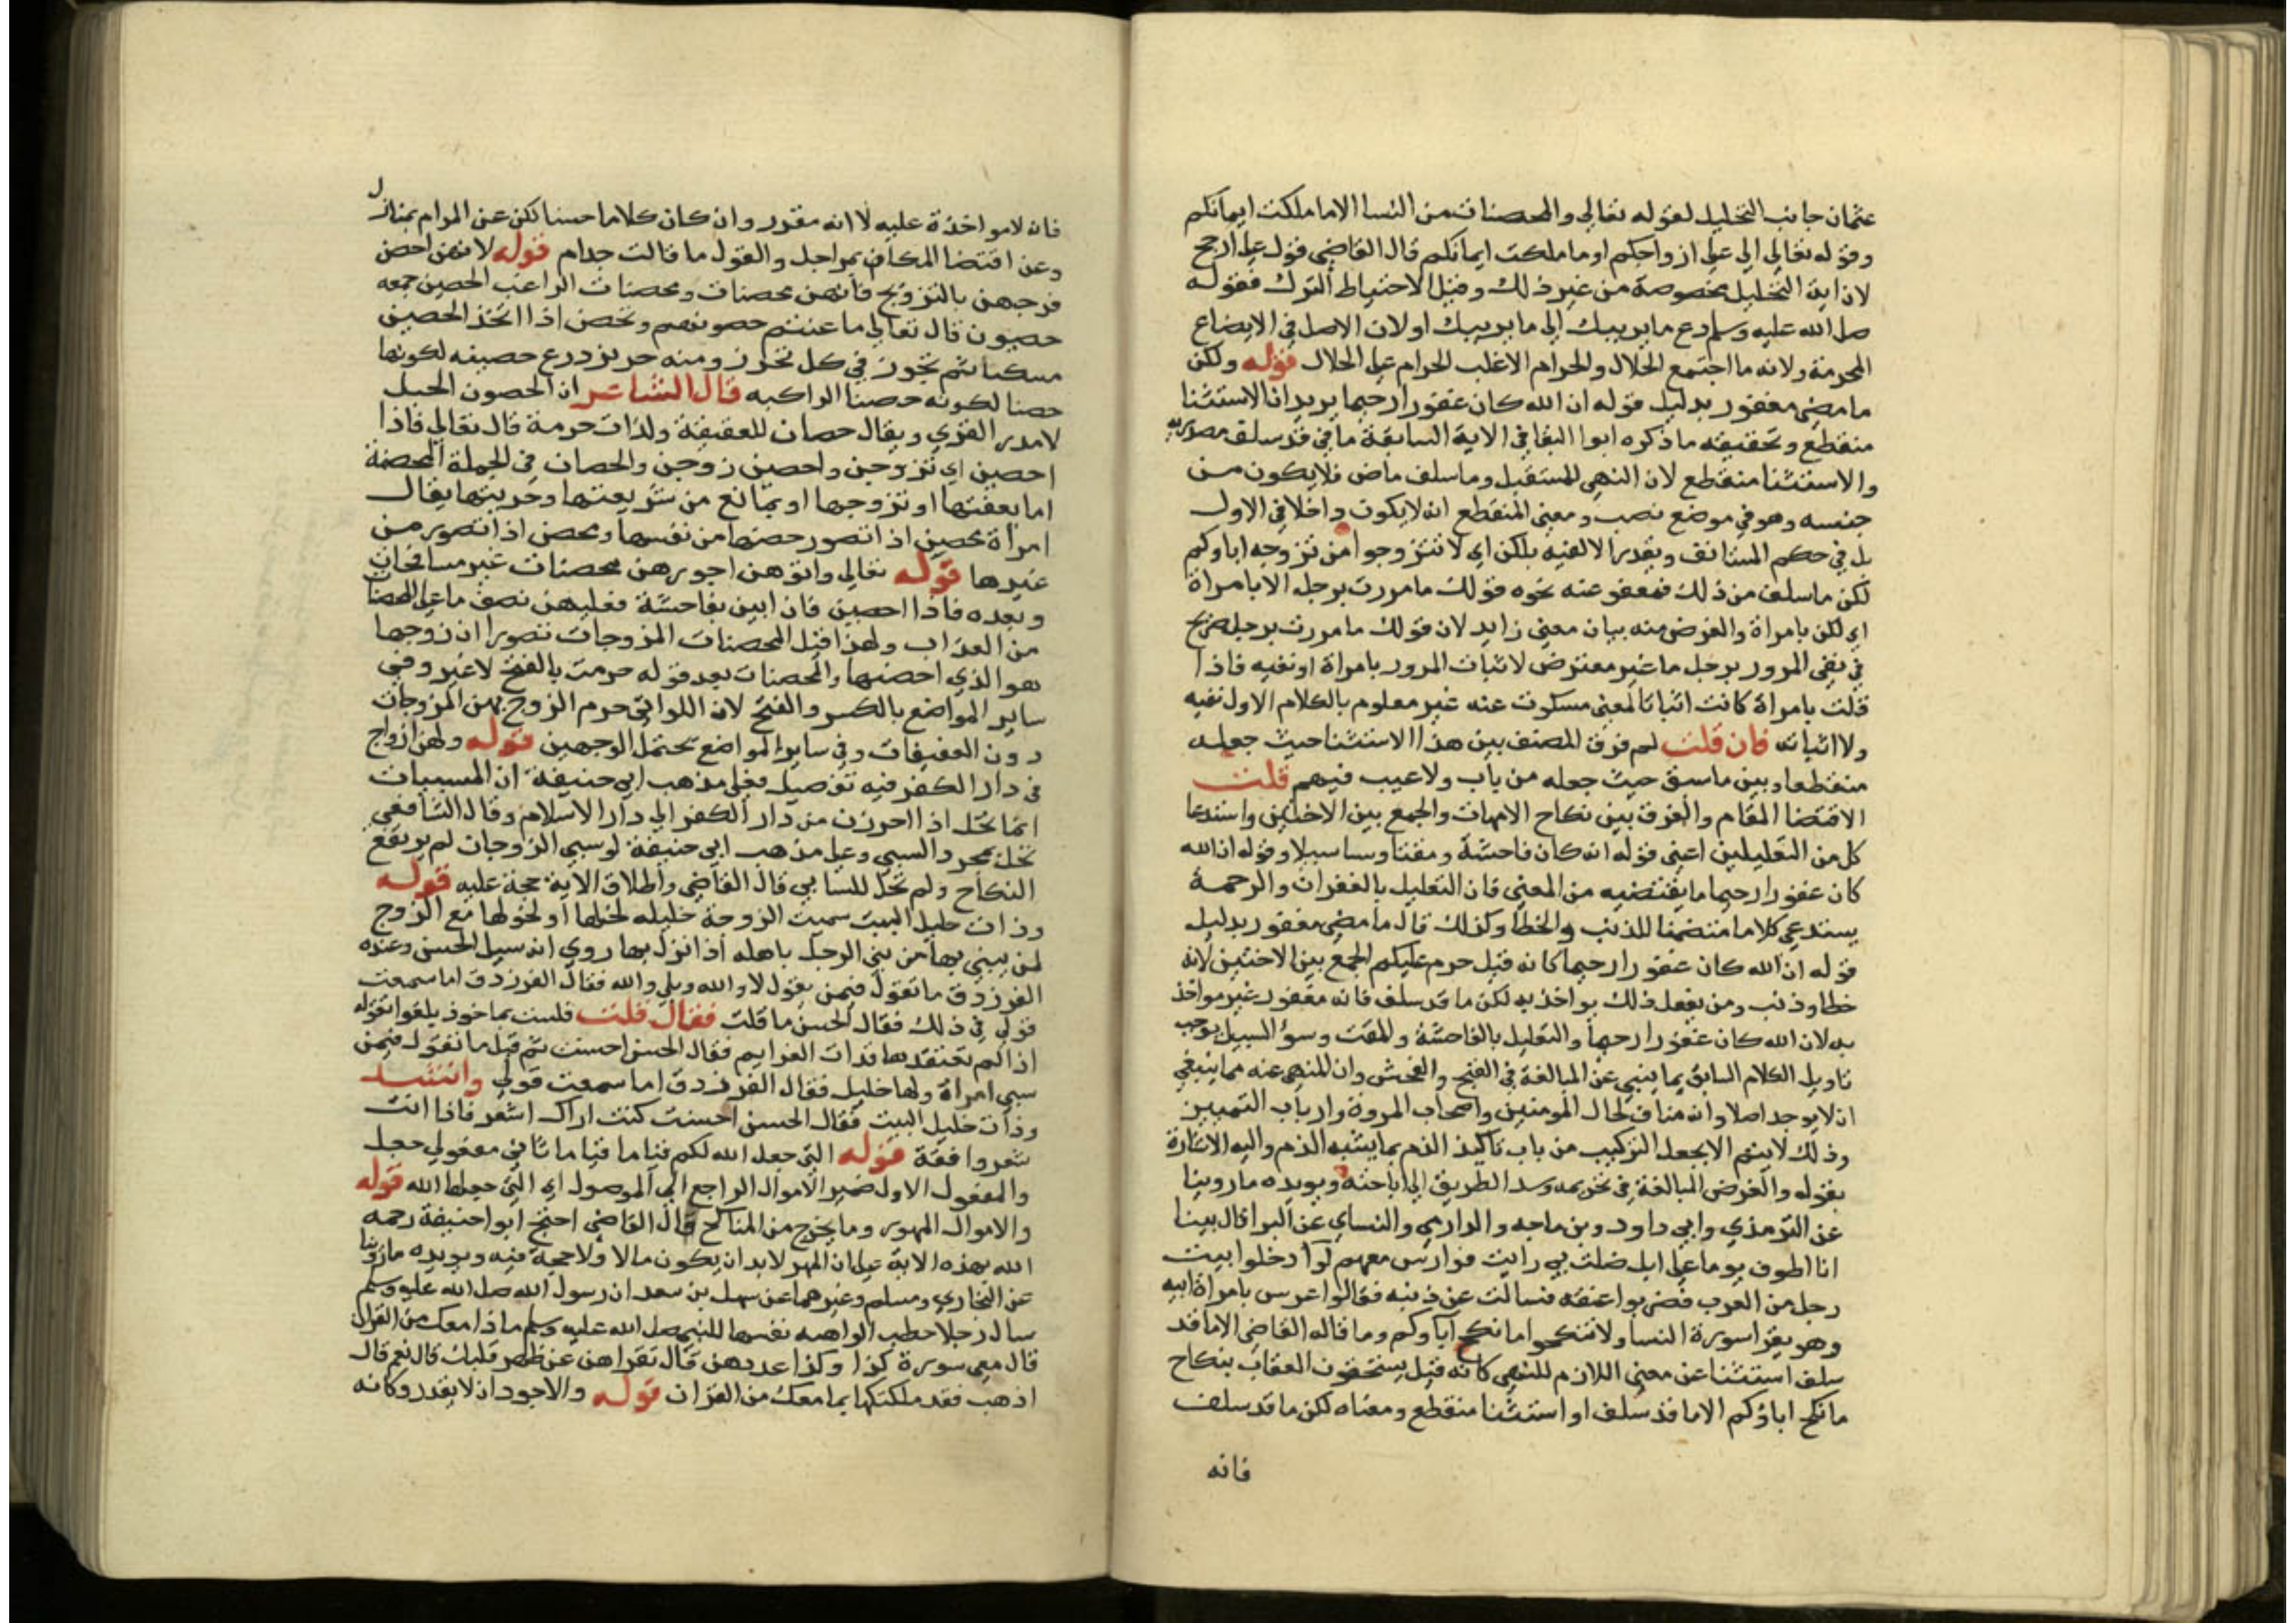 عثمان جانب التحليل لقوله تعالى والمحصنات من النسا الا ما ملكت ايمانكم
وقوله تعالى الى على ازواجكم او ما ملكت ايمانكم قال القاضي قول علي ارجح
لان اية التحليل مخصوصة من غير ذلك وقيل الاحتياط الترك فقوله
صلى الله عليه وسلم دع ما يريبك الى ما يريبك او لان الاصل في الابضاع
الحرمة ولانه ما اجتمع الحلال والحرام الا غلب الحرام على الحلال قوله ولكن
ما مضى مغفور بدليل قوله ان الله كان غفورا رحيما يريد ان الاستثنا
منقطع وتحقيقه ما ذكره ابوا البقا في الاية السابقة ما في قد سلف مصدرية
والاستثنا منقطع لان النهي للمستقبل وما سلف ماض فلا يكون من
جنسه وهو في موضع نصب ومعنى المنقطع انه لا يكون داخلا في الاول
بل في حكم المستانف ويقدر الا لفيه بلكن اي لا تتزوجوا من تزوجه اباوكم
لكن ما سلف من ذلك فمعفو عنه نحوه قولك ما مررت برجل الا بامراة
اي لكن بامراة والغرض منه بيان معنى زايد لان قولك ما مررت برجل صريح
في نفي المرور برجل ما غير معترض لاثبات المرور بامراة او نفيه فاذا
قلت بامراة كانت اثباتا لمعنى مسكوت عنه غير معلوم بالكلام الاول نفيه
ولا اثباته فان قلت لم فرق المصنف بين هذا الاستثنا حيث جعله
منقطعا وبين ما سبق حيث جعله من باب ولا عيب فيهم قلت
الاقتضا المقام والفرق بين نكاح الامهات والجمع بين الاختين واستدعا
كل من التعليلين اعني قوله انه كان فاحشة ومقتا وسا سبيلا وقوله ان الله
كان غفورا رحيما ما يقتضيه من المعنى فان التعليل بالغفران والرحمة
يستدعي كلاما متضمنا للذنب والخطا وكذلك قال ما مضى مغفور بدليل
قوله ان الله كان غفورا رحيما كانه قيل حرم عليكم الجمع بين الاختين لانه
خطا وذنب ومن يفعل ذلك يواخذ به لكن ما قد سلف فانه مغفور غير مواخذ
به لان الله كان غفورا رحيما والتعليل بالفاحشة والمقت وسو السبيل يوجب
تاويل الكلام السابق بما ينبي عن المبالغة في القبح والفحش وان المنهي عنه مما ينبغي
ان لا يوجد اصلا وانه مناف لحال المومنين واصحاب المروة وارباب التمييز
وذلك لا يتم الا بجعل التركيب من باب تاكيد الذم بما يشبه الذم واليه الاشارة
بقوله والغرض المبالغة في تحريمه وسد الطريق الى اباحته ويويده ما روينا
عن الترمذي وابي داود وبن ماجه والدارمي والنساي عن البرا قال بينا
انا اطوف يوما على ابل ضلت بي رايت فوارس معهم لوا دخلوا بيت
رجل من العرب فضربوا عنقه فسالت عن ذنبه فقالوا اعرس بامراة ابيه
وهو يقرا سورة النسا ولا تنكحوا ما نكح اباوكم وما قاله القاضي الا ما قد
سلف استثنا عن معنى اللازم للنهي كانه قيل يستحقون العقاب بنكاح
ما نكح اباؤكم الا ما قد سلف او استثنا منقطع ومعناه لكن ما قد سلف
فانه
فانه لا مواخذة عليه لا انه مقرر وان كان كلاما حسنا لكن عن المرام بمنازل
وعن اقتضا المكان بمراحل والقول ما قالت جدام قوله لانهن احصن
فرجهن بالتزويج فانهن محصنات ومحصنات الراغب الحصين جمعه
حصون قال تعالى ما عنتم حصونهم وتحصن اذا اتخذ الحصين
مسكنا ثم تجوز في كل تحرز ومنه حريز درع حصينه لكونها
حصنا لكونه حصنا الراكبه قال الشاعر ان الحصون الخيل
لا مدر القرى ويقال حصان للعفيفة ولذات حرمة قال تعالى فاذا
احصين اي تزوجن واحصين زوجن والحصان في الجملة المحصنة
اما بعفتها او تزوجها او بمانع من شريعتها وحريتها يقال
امراة محصين اذا تصور حصنها من نفسها ومحصن اذا تصور من
غيرها قوله تعالى واتوهن اجورهن محصنات غير مسافحات
وبعده فاذا احصين فان اتين بفاحشة فعليهن نصف ما على المحصنا
من العذاب ولهذا قيل المحصنات المزوجات تصورا ان زوجها
هو الذي احصنها والمحصنات بعد قوله حرمت بالفتح لا غير وفي
ساير المواضع بالكسر والفتح لان اللواتي حرم الزوج بهن المزوجات
دون العفيفات وفي ساير المواضع يحتمل الوجهين قوله ولهن ازواج
في دار الكفر فيه تفصيل فعلى مذهب ابي حنيفة ان المسبيات
انما تحل اذا احرزن من دار الكفر الى دار الاسلام وقال الشافعي
تحل بمجرد السبي وعلى مذهب ابي حنيفة لو سبي الزوجان لم يرتفع
النكاح ولم تحل للسابي قال القاضي واطلاق الاية حجة عليه قوله
وذات حليل البيت سميت الزوجة حليله لحلها او لحلولها مع الزوج
لمن يبني بها من بني الرجل باهله اذا نزل بها روي انه سيل الحسن وعنده
الفرزدق ما تقول فيمن يقول لا والله وبلى والله فقال الفرزدق اما سمعت
قولي في ذلك فقال الحسن ما قلت فقال قلت فلست بماخوذ بلغو تقوله
اذا لم تعتقدها فدات العزايم فقال الحسن احسنت ثم قيل ما تقول فيمن
سبى امراة ولها حليل فقال الفرزدق اما سمعت قولي وانشد
وذات حليل البيت فقال الحسن احسنت كنت اراك اشعر فاذا انت
شعر وافقة قوله التي جعل الله لكم قياما قياما ثاني مفعولي جعل
والمفعول الاول ضمير الاموال الراجع الى الموصول اي التي جعلها الله قوله
والاموال المهور وما يخرج من المناكح قال القاضي احتج ابوا حنيفة رحمه
الله بهذه الاية على ان المهر لا بد ان يكون مالا ولا حجة فيه ويويده ما روينا
عن البخاري ومسلم وغيرهما عن سهل بن سعد ان رسول الله صلى الله عليه وسلم
سال رجلا خطب الواهبه نفسها للنبي صلى الله عليه وسلم ماذا معك من القران
قال معي سورة كذا وكذا عددهن قال تقراهن عن ظهر قلبك قال نعم قال
اذهب فقد ملكتكها بما معك من القران قوله والاجود ان لا يقدر وكانه